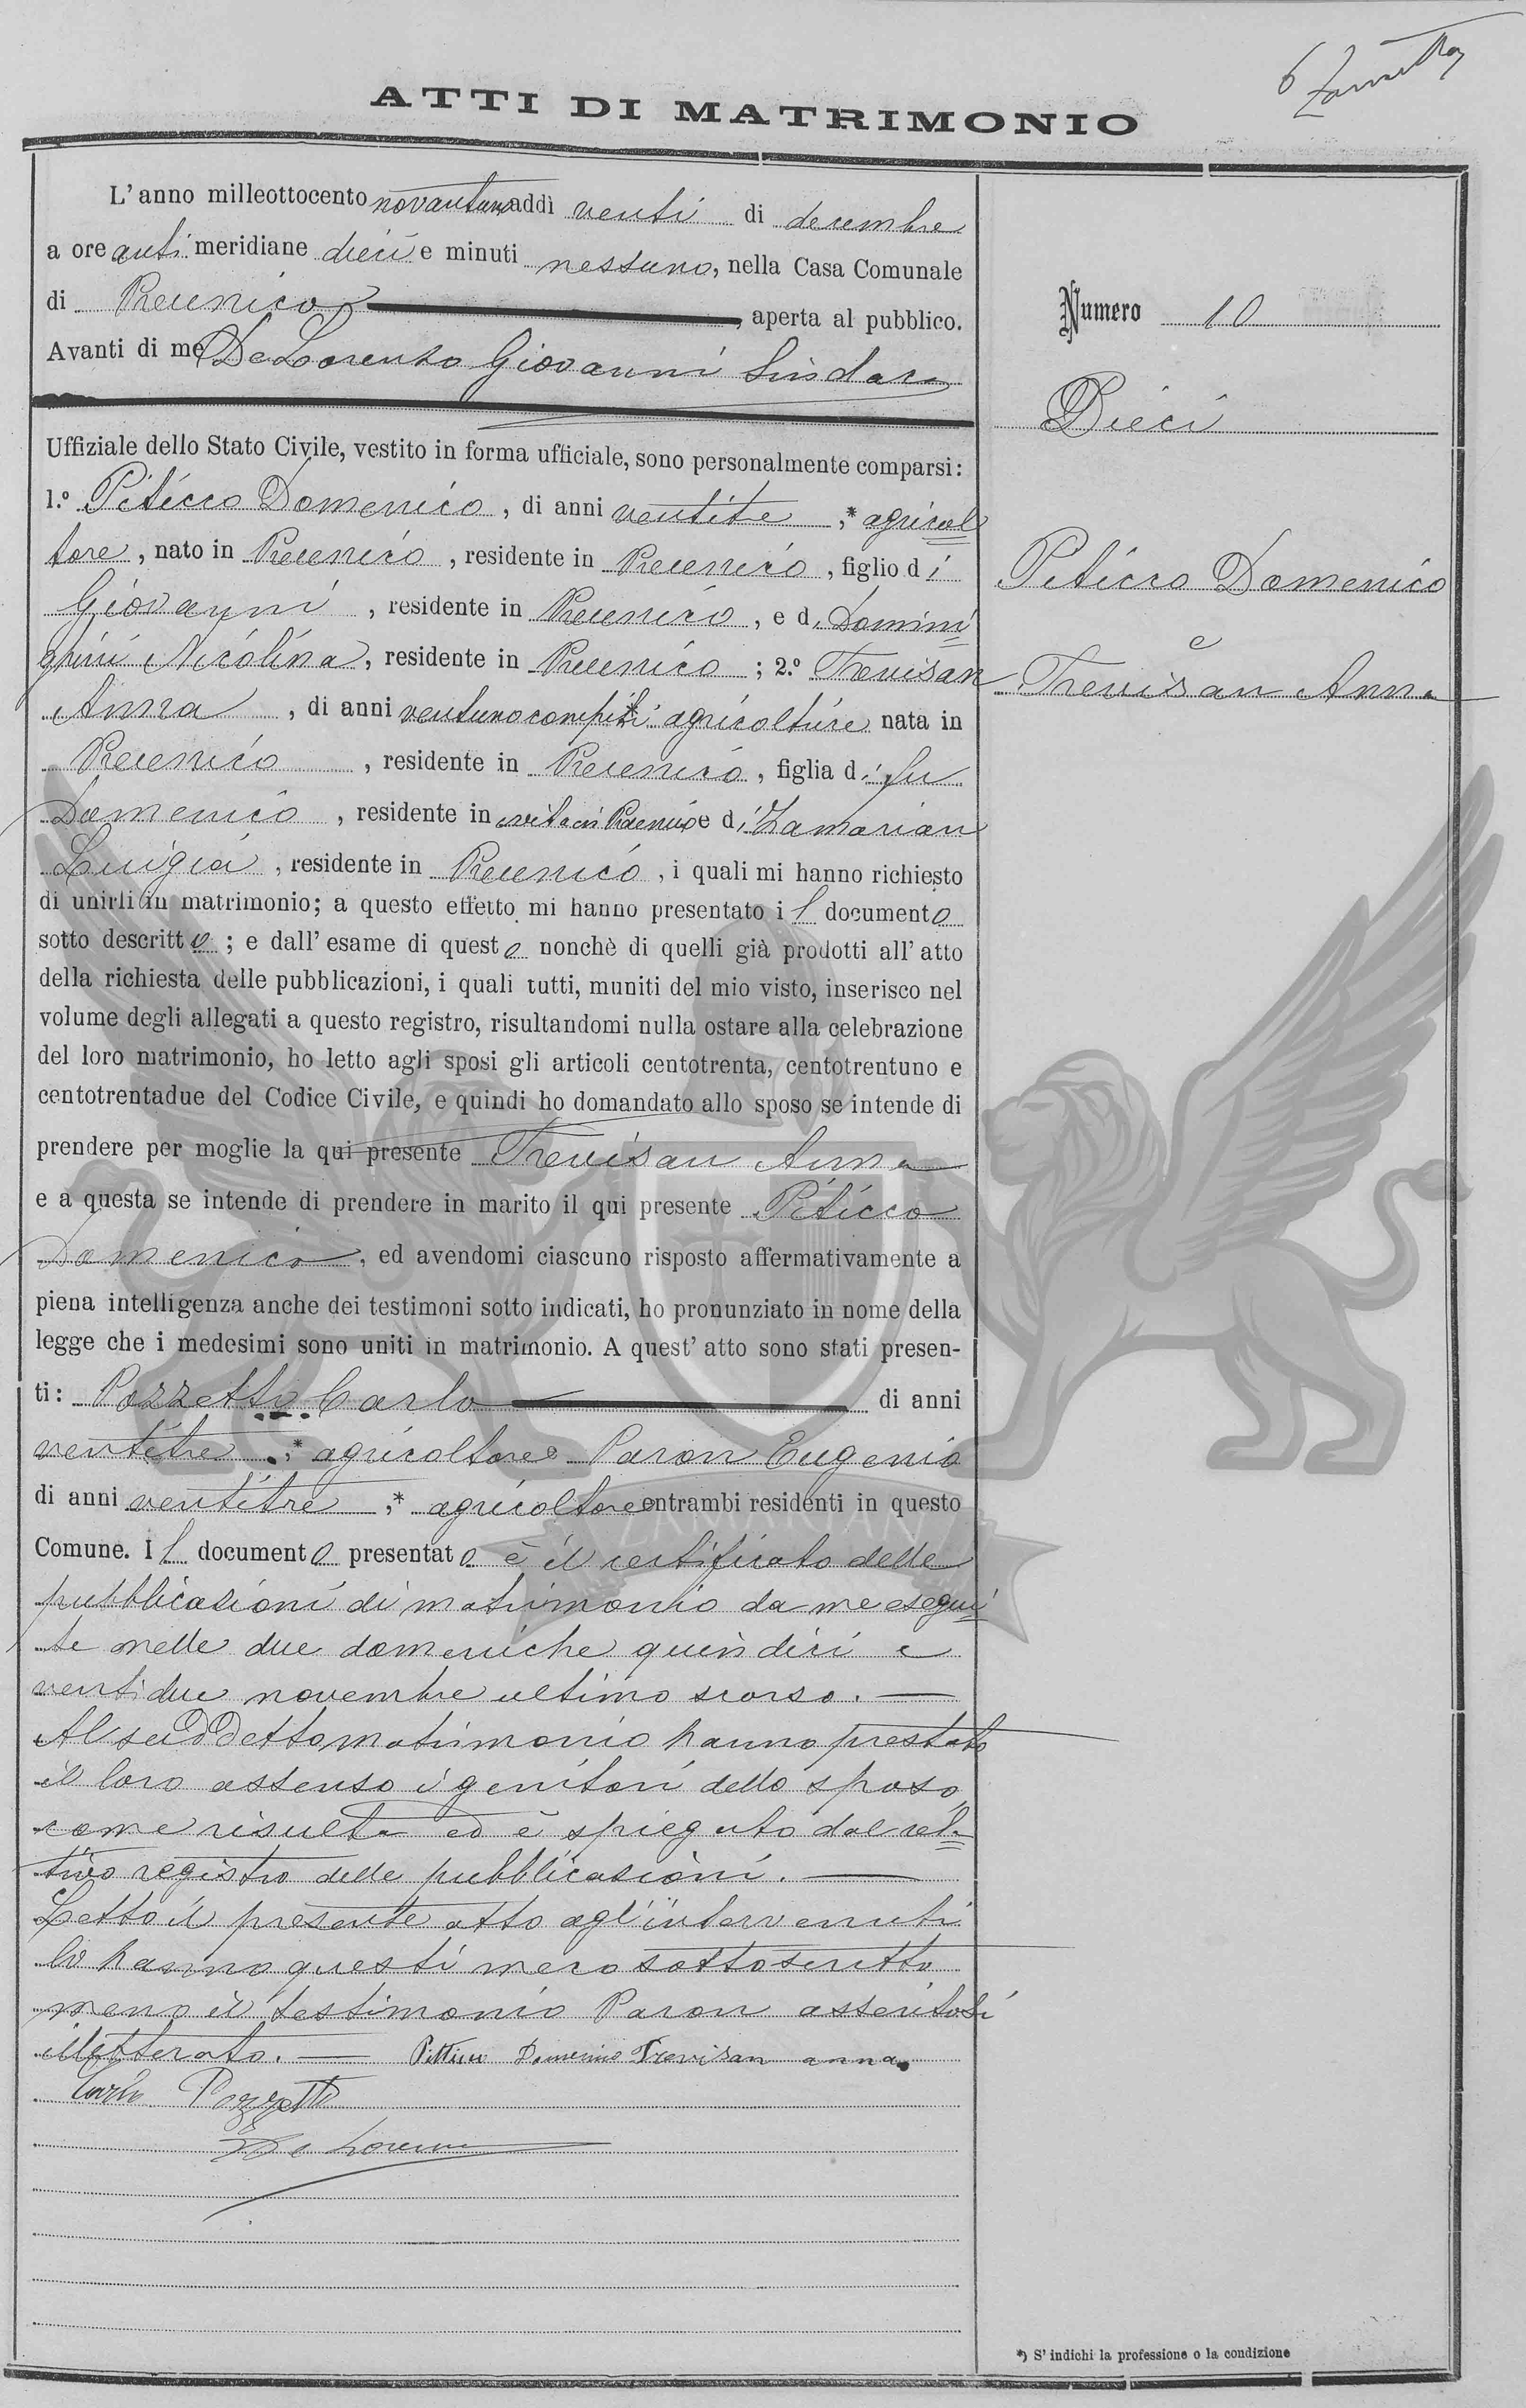 6
ATTI DI MATRIMONIO
L'anno milleottocento novantuno addì venti di decembre
a ore anti meridiane dieci e minuti nessuno, nella Casa Comunale
di Precenico, aperta al pubblico.
Avanti di me De Lorenzo Giovanni Sindaco
Uffiziale dello Stato Civile, vestito in forma ufficiale, sono personalmente comparsi:
1.º Piticco Domenico, di anni ventitre,* agricol
tore, nato in Precenico, residente in Precenico, figlio di
Giovanni, residente in Precenico, e di Domini
ghini Nicolina, residente in Precenico; 2.º Trevisan
Anna, di anni ventuno compiti* agricoltrice nata in
Precenico, residente in Precenico, figlia di fu
Domenico, residente in vita in Precenico e di Zamarian
Luigia, residente in Precenico, i quali mi hanno richiesto
di unirli in matrimonio; a questo effetto mi hanno presentato il documento
sotto descritto; e dall'esame di questo nonchè di quelli già prodotti all'atto
della richiesta delle pubblicazioni, i quali tutti, muniti del mio visto, inserisco nel
volume degli allegati a questo registro, risultandomi nulla ostare alla celebrazione
del loro matrimonio, ho letto agli sposi gli articoli centotrenta, centotrentuno e
centotrentadue del Codice Civile, e quindi ho domandato allo sposo se intende di
prendere per moglie la qui presente Trevisan Anna
e a questa se intende di prendere in marito il qui presente Piticco
Domenico, ed avendomi ciascuno risposto affermativamente a
piena intelligenza anche dei testimoni sotto indicati, ho pronunziato in nome della
legge che i medesimi sono uniti in matrimonio. A quest'atto sono stati presen-
ti: Pozzetto Carlo di anni
ventitre,* agricoltore e Paron Eugenio
di anni ventitre,* agricoltore entrambi residenti in questo
Comune. Il documento presentato è il certificato delle
pubblicazioni di matrimonio da me esegui
te nelle due domeniche quindici e
ventidue novembre ultimo scorso. —
Al suddetto matrimonio hanno prestato
il loro assenso i genitori dello sposo
come risulta ed è spiegato dal rela
tivo registro delle pubblicazioni. —
Letto il presente atto agl'intervenuti
lo hanno questi meco sottoscritto
meno il testimonio Paron asseritosi
illetterato. — Pitticco Domenico Trevisan anna
Carlo Pozzetto
De Lorenzo
Numero 10
Dieci
Piticco Domenico
e
Trevisan Anna
*) S'indichi la professione o la condizione